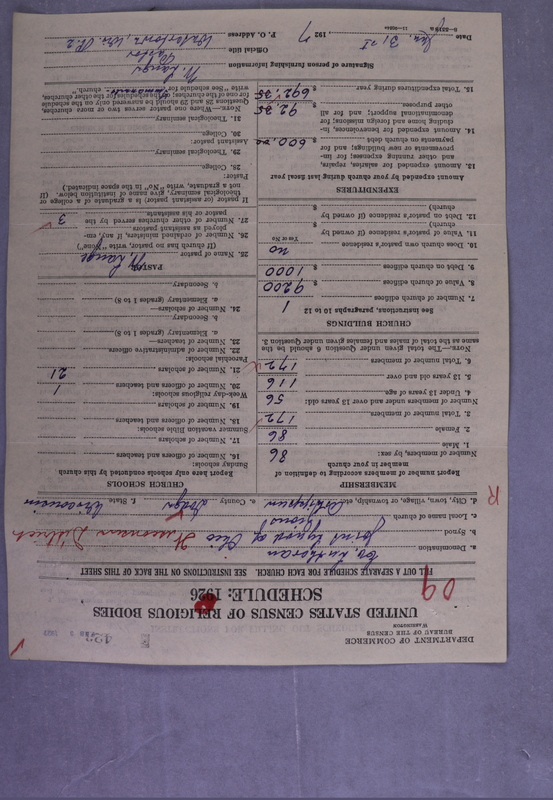 DEPARTMENT OF COMMERCE
BUREAU OF THE CENSUS
WASHINGTON
UNITED STATES CENSUS OF RELIGIOUS BODIES
SCHEDULE: 1926
09
FILL OUT A SEPARATE SCHEDULE FOR EACH CHURCH. SEE INSTRUCTIONS ON THE BACK OF THIS SHEET
a. Denomination Ev. Lutheran
b. Synod Joint Synod of Ohio Wisconsin District
c. Local name of church
d. City, town, village, or township, etc. e. County Dodge f. State Wisconsin
R
MEMBERSHIP
Report number of members according to definition of member in your church
Number of members, by sex:
1. Male 86
2. Female 86
3. Total number of members 172
Number of members under and over 13 years old:
4. Under 13 years of age 56
5. 13 years old and over 116
6. Total number of members 172
NOTE—The total given under Question 6 should be the same as the total of males and females given under Question 3.
CHURCH BUILDINGS
See Instructions, paragraphs 10 to 12
7. Number of church edifices 1
8. Value of church edifices $ 9200
9. Debt on church edifices $ 1000
10. Does church own pastor's residence no
Yes or No
11. Value of pastor's residence (if owned by church) $
12. Debt on pastor's residence (if owned by church) $
EXPENDITURES
Amount expended by your church during last fiscal year
13. Amount expended for salaries, repairs, and other running expenses; for improvements or new buildings; and for payments on church debt $ 600.00
14. Amount expended for benevolences, including home and foreign missions; for denominational support; and for all other purposes $ 92.35
15. Total expenditures during year $ 692.35
CHURCH SCHOOLS
Report here only schools conducted by this church
Sunday schools:
16. Number of officers and teachers
17. Number of scholars
Summer vacation Bible schools:
18. Number of officers and teachers
19. Number of scholars
Week-day religious schools:
20. Number of officers and teachers 1
21. Number of scholars 21
Parochial schools:
22. Number of administrative officers
23. Number of teachers—
a. Elementary (grades 1 to 8)
b. Secondary
24. Number of scholars—
a. Elementary (grades 1 to 8)
b. Secondary
PASTOR
25. Name of pastor M. Lange
(If church has no pastor, write "None")
26. Number of ordained ministers, if any, employed as assistant pastors
27. Number of other churches served by the pastor or his assistants 3
If pastor (or assistant pastor) is a graduate of a college or theological seminary, give name of institution below. (If not a graduate, write "No" in the space indicated.)
Pastor:
28. College
29. Theological seminary
Assistant pastor:
30. College
31. Theological seminary
NOTE—Where one pastor serves two or more churches, Questions 28 and 29 should be answered only on the schedule for one of the churches; on the schedules for the other churches, write "See schedule for church."
Signature of person furnishing information M. Lange
Official title Pastor
P. O. Address Watertown, Wis. R. 2
Date Jan. 31st, 1927